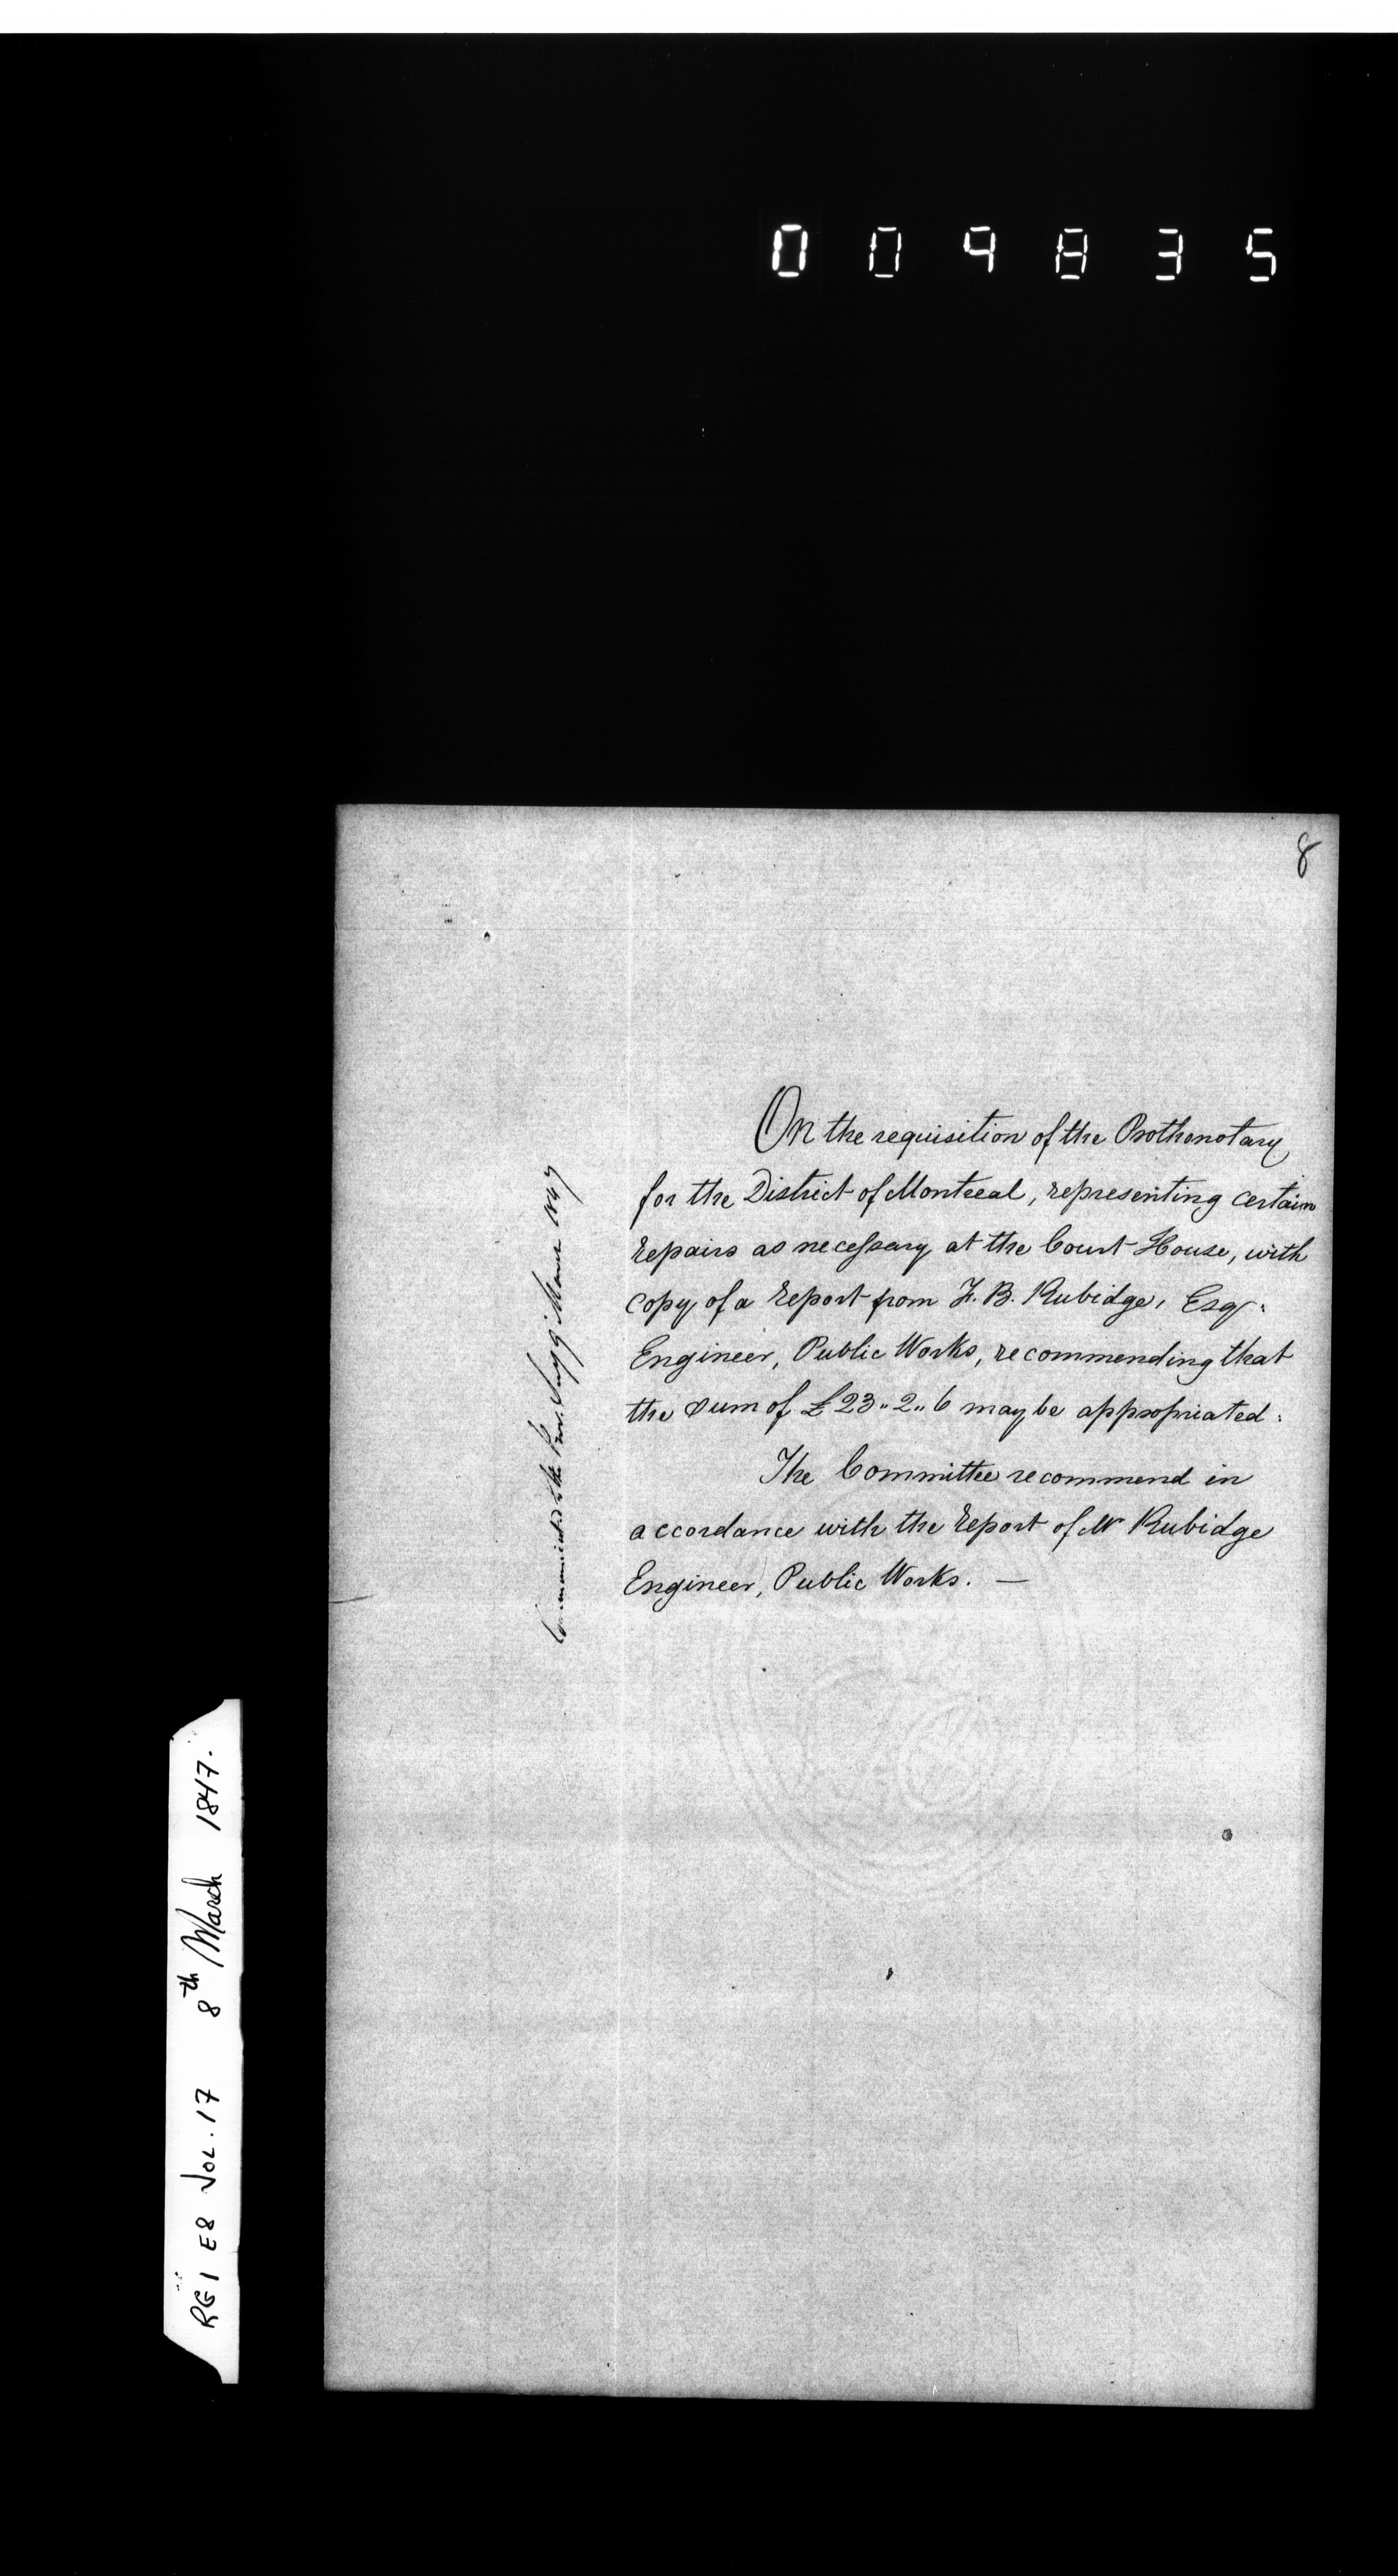 009835
8
On the requisition of the Prothonotary
for the District of Montreal, representing certain
repairs as necessary at the Court House, with
copy of a Report from F. B. Rubidge, Esqr.
Engineer, Public Works, recommending that
the sum of £23..2..6 may be appropriated.
The Committee recommend in
accordance with the Report of Mr Rubidge
Engineer, Public Works. —
Communicated to the Prov. Secy 9 March 1847
RG1 E8 VOL. 17 8th March 1847.